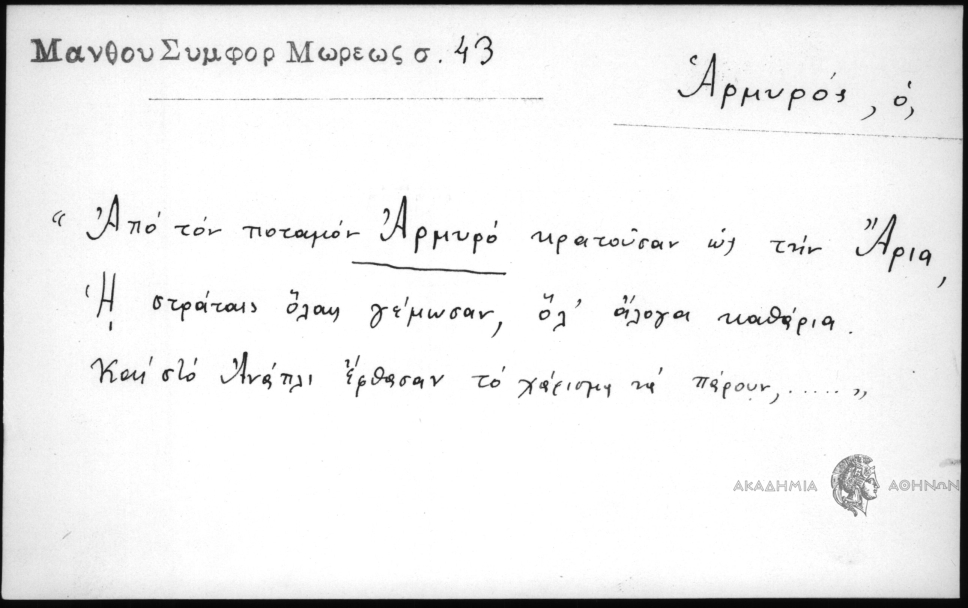 Μανθου Συμφορ Μωρεως σ. 43
Ἁρμυρός, ὁ,
“ Ἀπό τόν ποταμόν Ἁρμυρό κρατοῦσαν ὡς τήν Ἄρια,
Ἡ στράταις ὅλαις γέμωσαν, ὅλ’ ἄλογα καθάρια.
Καί στό Ἀνάπλι ἔρθασαν τό χάρισμα νά πάρουν, ..... „
ΑΚΑΔΗΜΙΑ ΑΘΗΝΩΝ